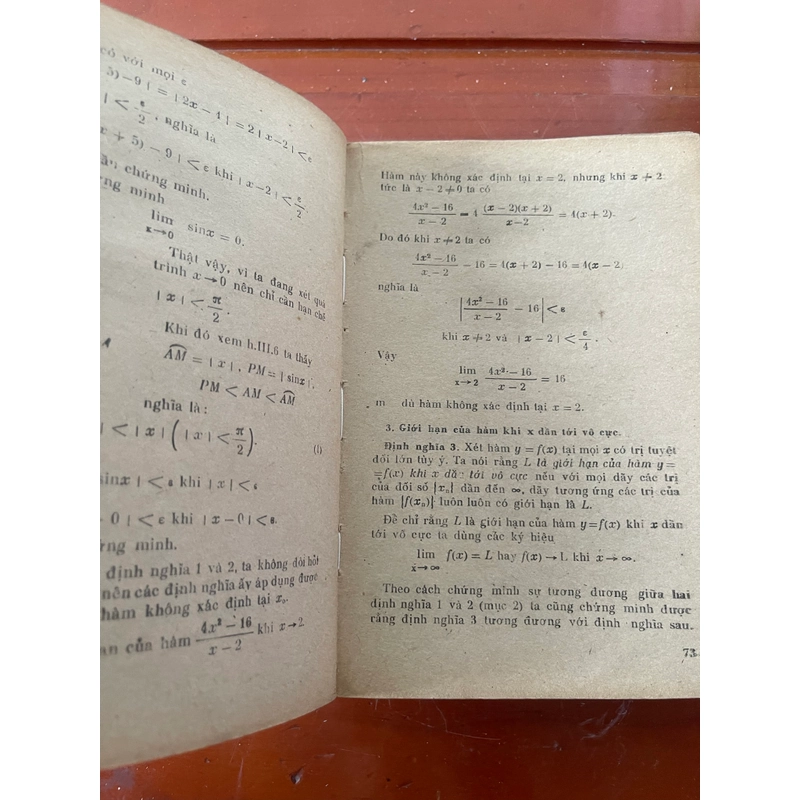 có với mọi ε
5)−9 | = | 2x−4 | = 2 | x−2 | < ε
| < ε/2, nghĩa là
x + 5) − 9 | < ε khi | x−2 | < ε/2.
chứng minh.
minh
lim sinx = 0.
x→0
Thật vậy, vì ta đang xét quá
trình x→0 nên chỉ cần hạn chế
| x | < π/2.
Khi đó xem h.III.6 ta thấy
AM = | x |, PM = | sinx |.
PM < AM < AM
nghĩa là:
| < | x | ( | x | < π/2 ). (1)
sinx | < ε khi | x | < ε
− 0 | < ε khi | x − 0 | < ε.
minh.
định nghĩa 1 và 2, ta không đòi hỏi
nên các định nghĩa ấy áp dụng được
hàm không xác định tại x₀.
của hàm (4x² − 16)/(x − 2) khi x→2
Hàm này không xác định tại x = 2, nhưng khi x ≠ 2
tức là x − 2 ≠ 0 ta có
(4x² − 16)/(x − 2) = 4 (x − 2)(x + 2)/(x−2) = 4(x + 2).
Do đó khi x ≠ 2 ta có
(4x² − 16)/(x − 2) − 16 = 4(x + 2) − 16 = 4(x − 2)
nghĩa là
| (4x² − 16)/(x − 2) − 16 | < ε
khi x ≠ 2 và | x − 2 | < ε/4.
Vậy
lim (4x² − 16)/(x − 2) = 16
x→2
m dù hàm không xác định tại x = 2.
3. Giới hạn của hàm khi x dần tới vô cực.
Định nghĩa 3. Xét hàm y = f(x) tại mọi x có trị tuyệt
đối lớn tùy ý. Ta nói rằng L là giới hạn của hàm y =
= f(x) khi x dần tới vô cực nếu với mọi dãy các trị
của đối số {xₙ} dần đến ∞, dãy tương ứng các trị của
hàm {f(xₙ)} luôn luôn có giới hạn là L.
Để chỉ rằng L là giới hạn của hàm y=f(x) khi x dần
tới vô cực ta dùng các ký hiệu
lim f(x) = L hay f(x) → L khi x → ∞.
x→∞
Theo cách chứng minh sự tương đương giữa hai
định nghĩa 1 và 2 (mục 2) ta cũng chứng minh được
rằng định nghĩa 3 tương đương với định nghĩa sau.
73